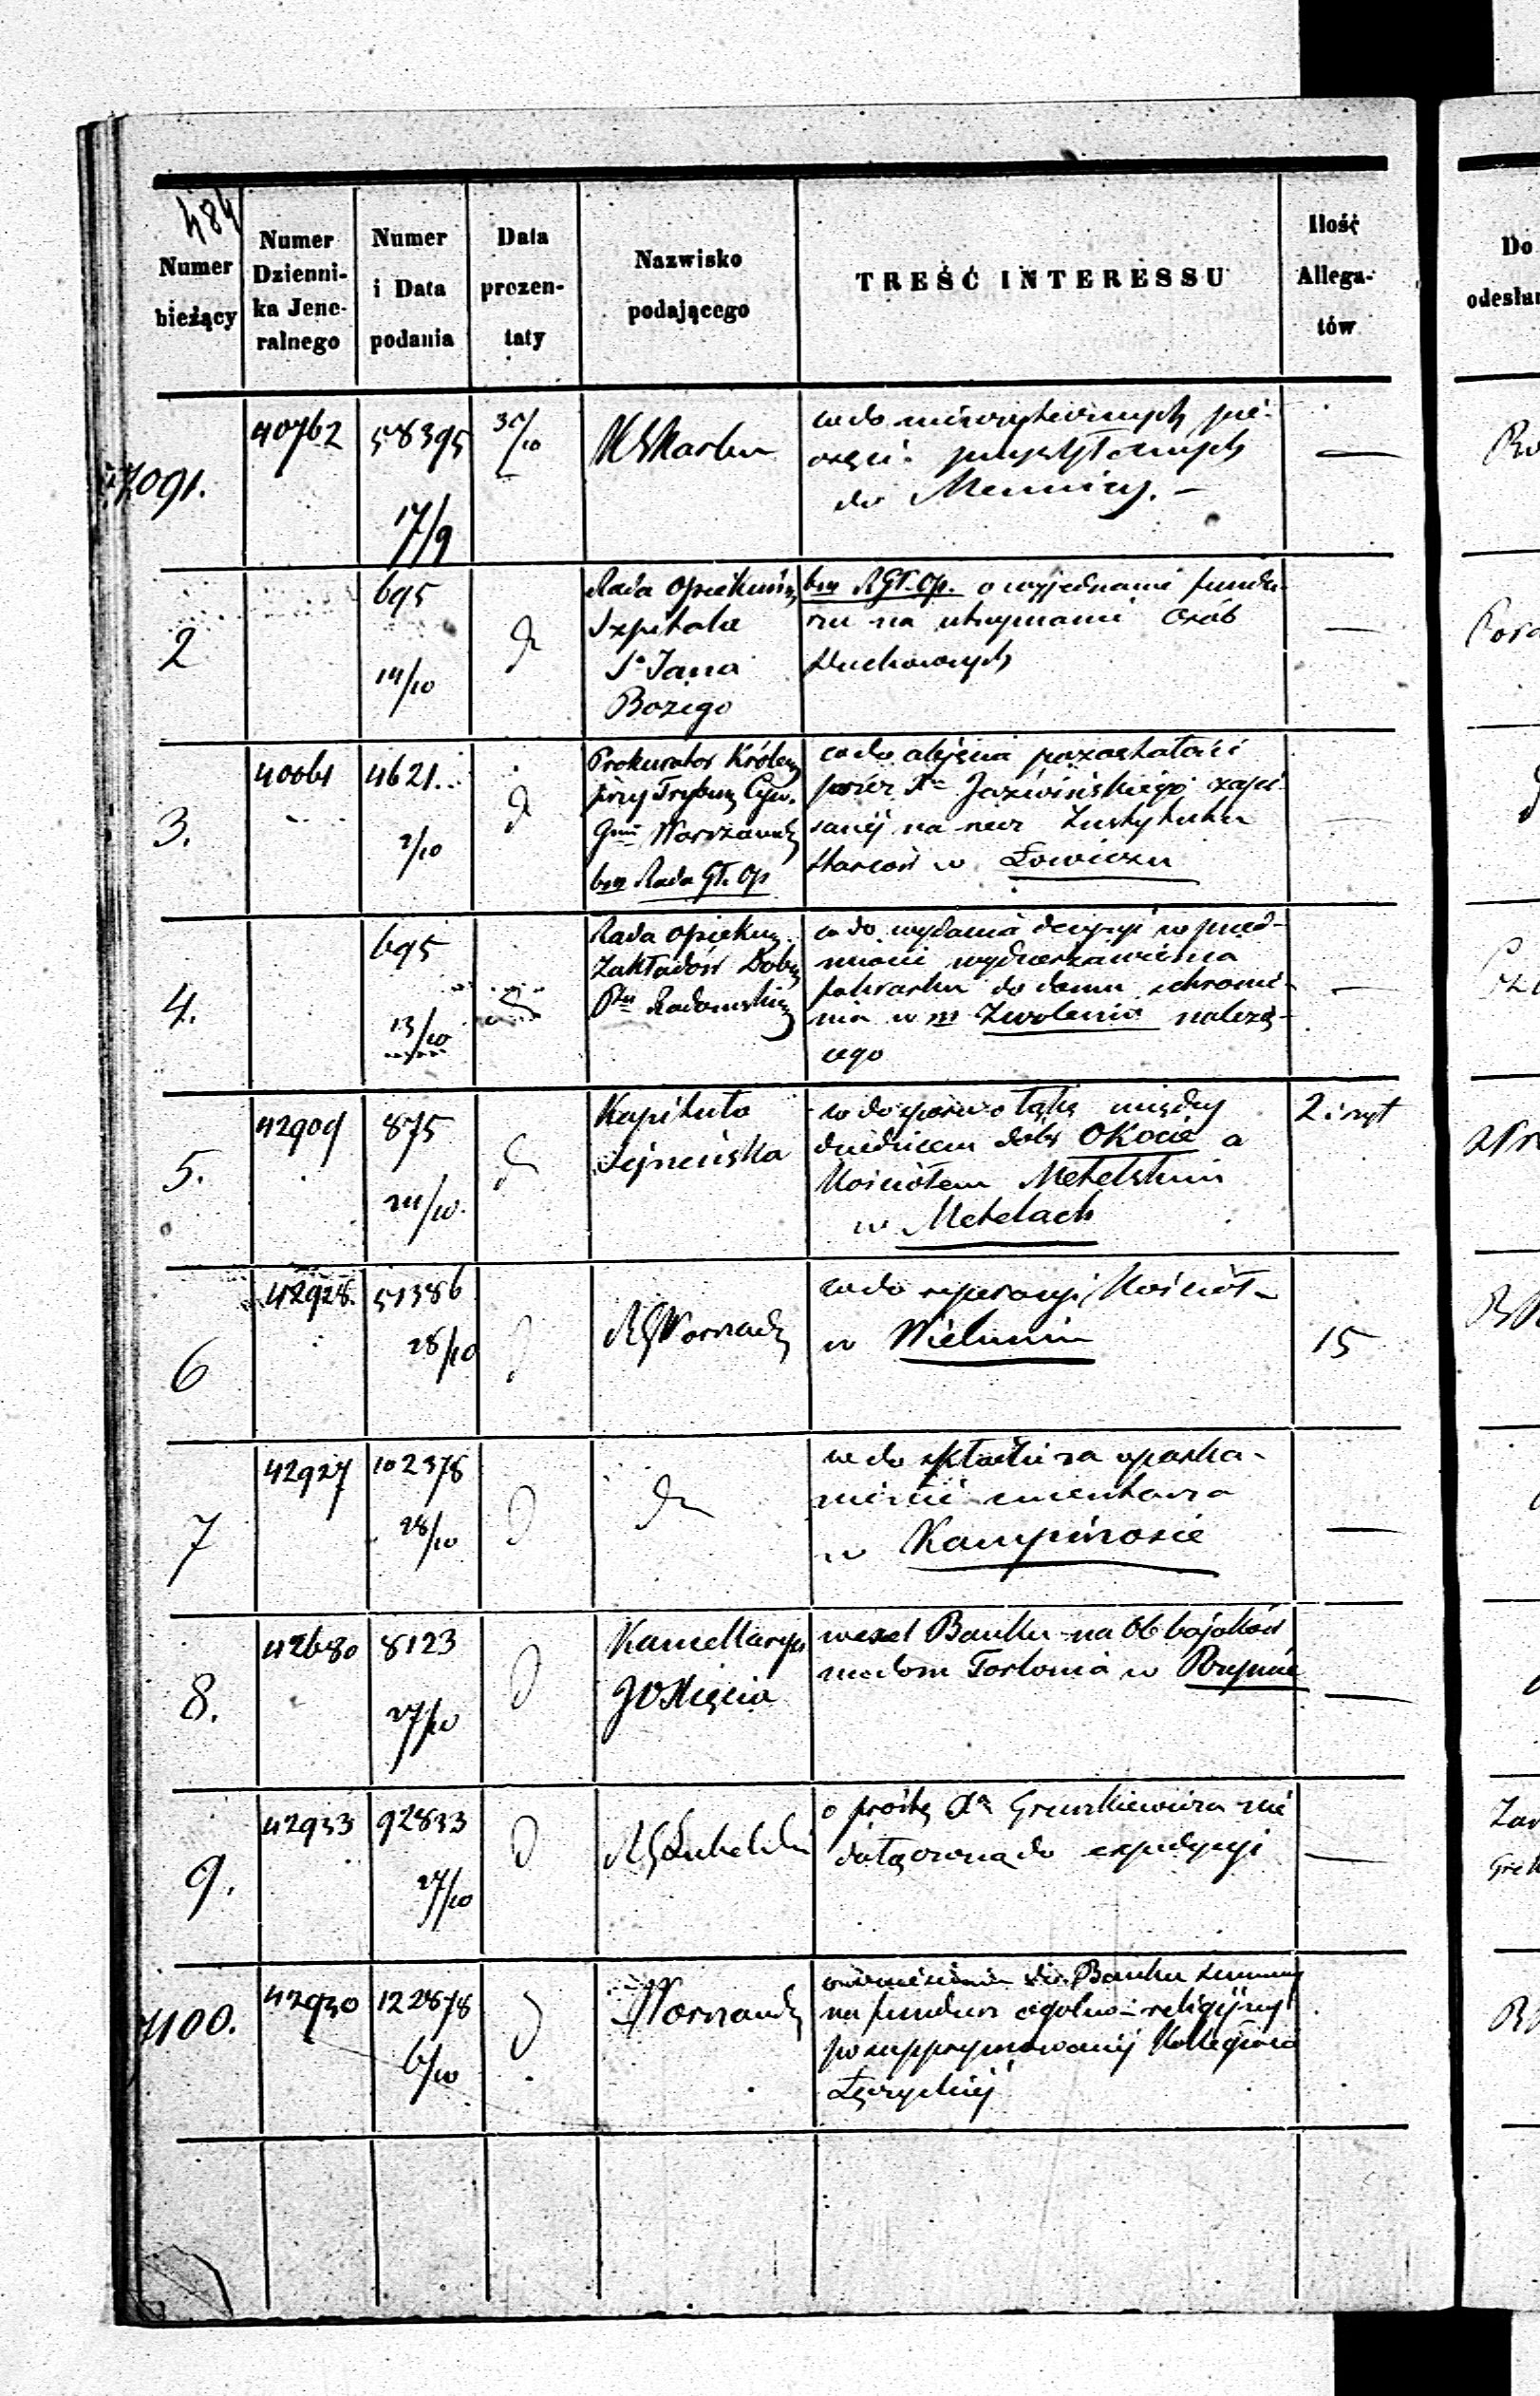 484
Numer
bieżący
Numer
Dzienni-
ka Jene-
ralnego
Numer
i Data
podania
Data
prozen-
taty
Nazwisko
podającego
TREŚĆ INTERESSU
Ilość
Allega-
tów
Do
7091.
40762
58395
17/9
30/10
KSkarbu
do Mennicy. –
—
2
695
14/10
d
Rada Opiekuńcz
Szpitala
S. Jana
Bożego
bm RGł. Op. o wyjednanie fundu-
szu na utrzymanie Osób
Duchownych
—
3.
40061
4621.
2/10
d
Prokurator Królew
przy Trybun Cyw.
Gnii Warszawsk
bm Rada Gł. Op
co do objęcia pozostałości
przez Xa Jaźwińskiego zapi-
sanej na rzecz Instytutu
starców w Łowiczu
—
4.
695
13/10
d
Rada Opiekuń
Zakładów Dobr
Ptu Radomskie
co do wydania decyzyi w przed-
miocie wydzierżawienia
folwarku do domu schronie-
nia w m Zwoleniu należą-
cego
—
5.
42909
875
24/10.
d
Kapituła
Sejneńska
co do sporu o łąkę między
dziedzicem dóbr Okocie a
Kościołem Metelskim
w Metelach
2 i szyt
6
42928.
51386
28/10
d
RGWarszaws
co do reperacyi Kościoł
w Wieluniu
15
7
42927
102378
28/10
d
d
co do składki na oparka-
nienie cmentarza
w Kampinosie
—
8.
42680
8123
27/10
d
Kancellarya
JOXięcia
wexel Banku na
na dom Torlonia w Rzymie
—
9.
42933
92833
27/10
d
RGLubelski
o prośbę Xa Gruszkiewicza nie
dołączoną do expedycyi
—
7100.
42930
122878
6/10
d
Warszaws
wniesienie do Banku summy
na fundusz ogolno-religijny
po supprymowanej Kollegiacie
Łęczyckiej